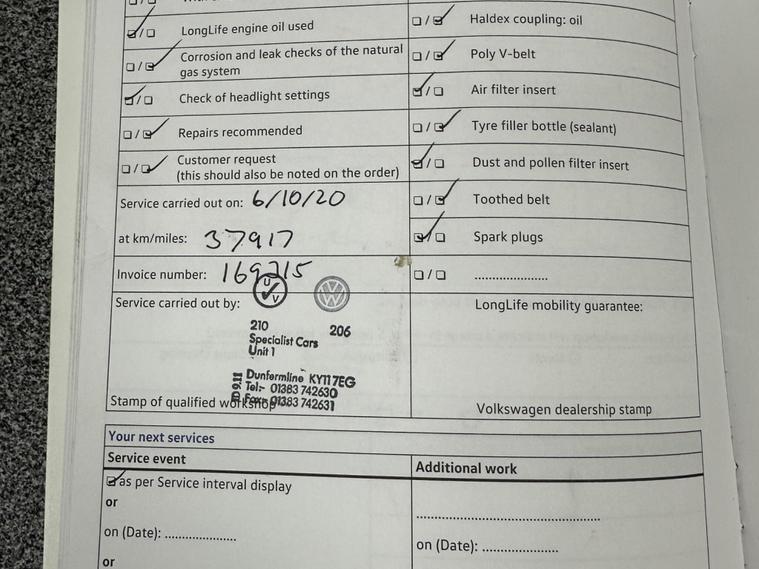 LongLife engine oil used
Corrosion and leak checks of the natural
gas system
Check of headlight settings
Repairs recommended
Customer request
(this should also be noted on the order)
Service carried out on: 6/10/20
at km/miles: 37917
Invoice number: 169215
Service carried out by:
210 206
Specialist Cars
Unit 1
Dunfermline KY11 7EG
Tel:- 01383 742630
Fax:- 01383 742631
Stamp of qualified workshop
Haldex coupling: oil
Poly V-belt
Air filter insert
Tyre filler bottle (sealant)
Dust and pollen filter insert
Toothed belt
Spark plugs
.....................
LongLife mobility guarantee:
Volkswagen dealership stamp
Your next services
Service event
as per Service interval display
or
on (Date): ....................
or
Additional work
..................................................
on (Date): .....................